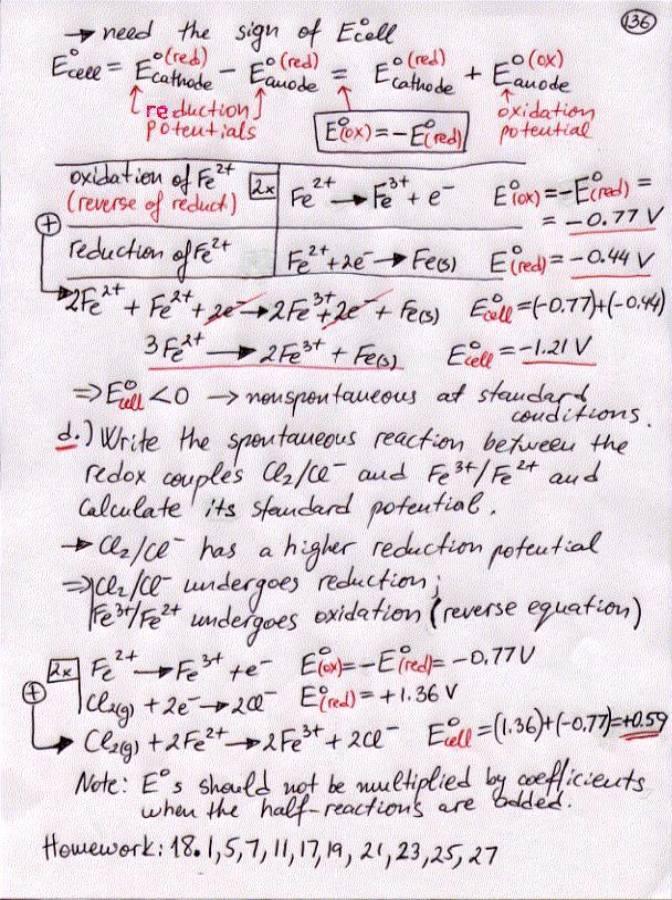 136
→ need the sign of E°cell
E°cell = E°(red)cathode − E°(red)anode = E°(red)cathode + E°(ox)anode
reduction potentials
E°(ox) = −E°(red)
oxidation potential
oxidation of Fe²⁺ (reverse of reduct.) 2x Fe²⁺ → Fe³⁺ + e⁻ E°(ox) = −E°(red) =
= −0.77 V
+
reduction of Fe²⁺ Fe²⁺ + 2e⁻ → Fe(s) E°(red) = −0.44 V
2Fe²⁺ + Fe²⁺ + 2e⁻ → 2Fe³⁺ + 2e⁻ + Fe(s) E°cell = (−0.77)+(−0.44)
3Fe²⁺ → 2Fe³⁺ + Fe(s) E°cell = −1.21 V
⇒ E°cell < 0 → nonspontaneous at standard
conditions.
d.) Write the spontaneous reaction between the
redox couples Cl₂/Cl⁻ and Fe³⁺/Fe²⁺ and
calculate its standard potential.
→ Cl₂/Cl⁻ has a higher reduction potential
⇒ Cl₂/Cl⁻ undergoes reduction;
Fe³⁺/Fe²⁺ undergoes oxidation (reverse equation)
2x Fe²⁺ → Fe³⁺ + e⁻ E°(ox) = −E°(red) = −0.77 V
+
Cl₂(g) + 2e⁻ → 2Cl⁻ E°(red) = +1.36 V
→ Cl₂(g) + 2Fe²⁺ → 2Fe³⁺ + 2Cl⁻ E°cell = (1.36)+(−0.77)=+0.59
Note: E°s should not be multiplied by coefficients
when the half-reactions are added.
Homework: 18.1,5,7,11,17,19, 21,23,25,27